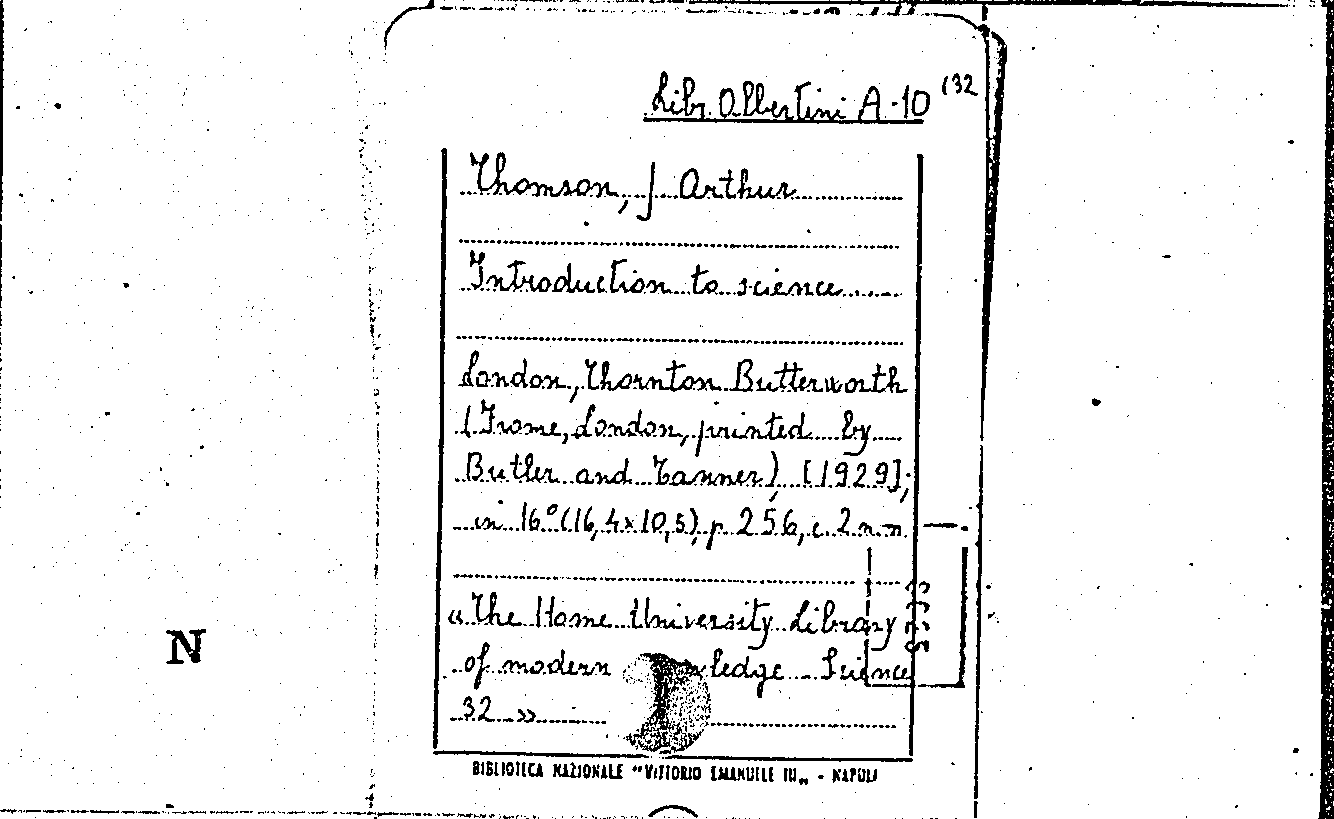 Libr. Albertini A-10 (32
Thomson, J Arthur
Introduction to science
London, Thornton Butterworth
(Frome, London, printed by
Butler and Tanner), [1929];
in 16° (16,4x10,5), p. 256, c. 2 n.n.
"The Home University Library
of modern ledge - Science
32 »
N
BIBLIOTECA NAZIONALE "VITTORIO EMANUELE III„ - NAPOLI